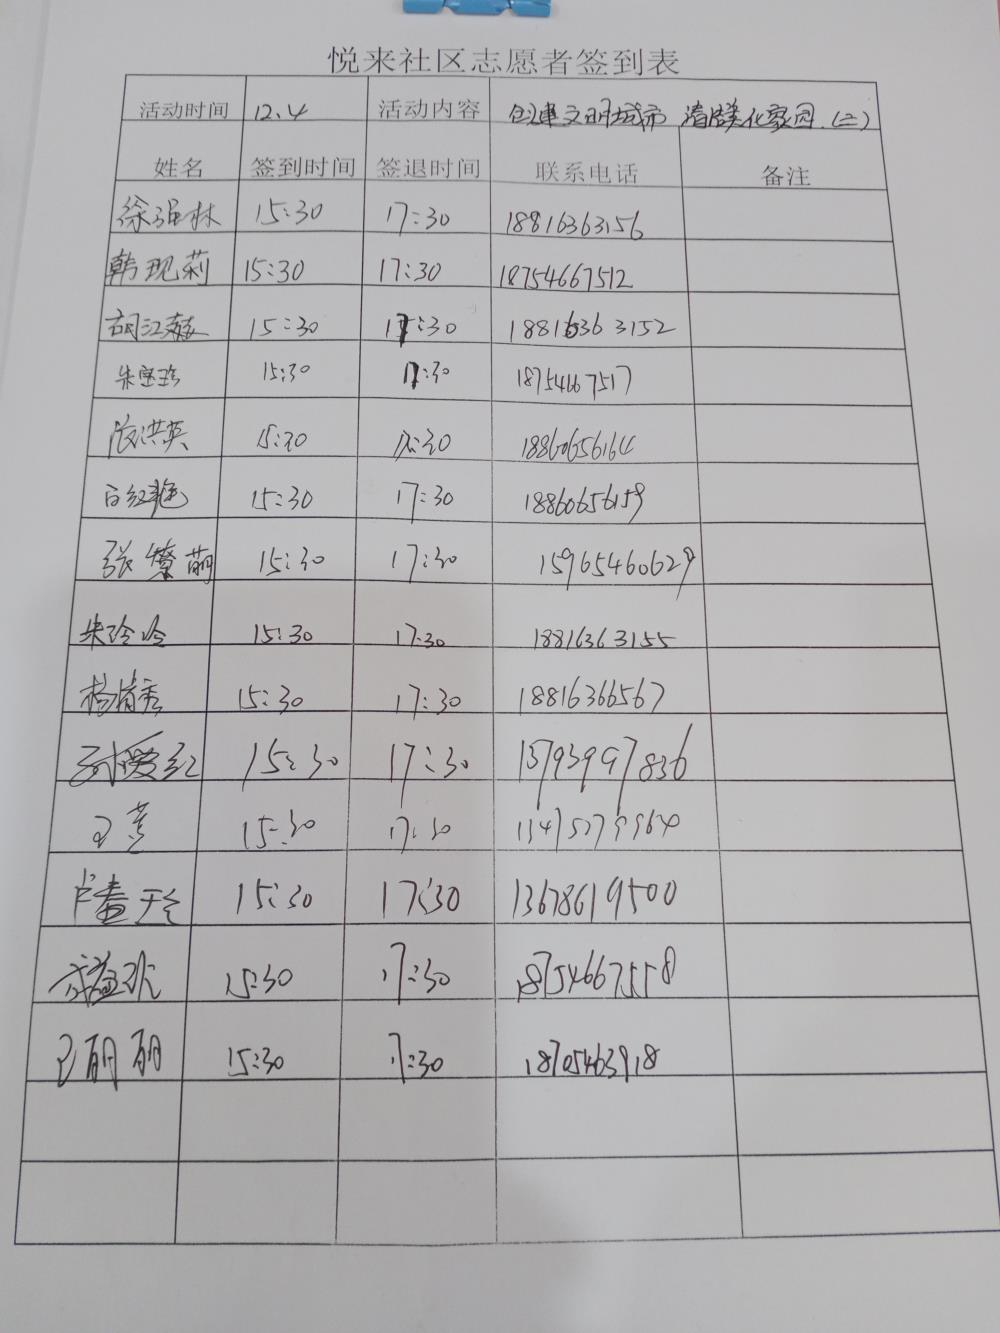 悦来社区志愿者签到表
活动时间 12.4 活动内容 创建文明城市 清洁美化家园.(二)
姓名 签到时间 签退时间 联系电话 备注
徐强林 15:30 17:30 18816363156
韩现莉 15:30 17:30 18754667512
胡江 15:30 17:30 18816363152
朱宝珍 15:30 17:30 18754667517
洪英 15:30 17:30 18860656164
白红艳 15:30 17:30 18860656159
张燎萌 15:30 17:30 15965460629
朱玲玲 15:30 17:30 18816363155
杨清秀 15:30 17:30 18816366567
孙爱红 15:30 17:30 13793997836
15:30 17:30 13475279960
卢春玲 15:30 17:30 13678619500
15:30 17:30 18754667558
丽丽 15:30 17:30 18705463918